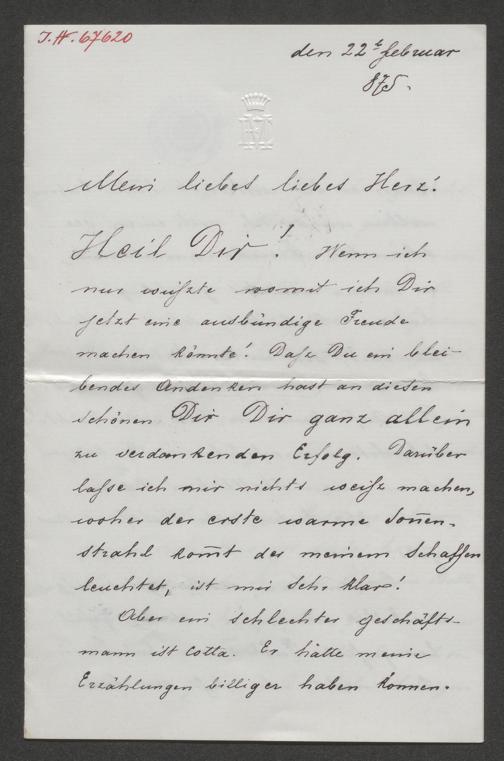 I.N. 67620
den 22t februar
875.
Mein liebes liebes Herz!
Heil Dir! Wenn ich
nur wußte womit ich Dir
jetzt eine ausbündige Freude
machen könnte! Daß Du ein blei-
bendes Andenken hast an diesen
schönen Dir Dir ganz allein
zu verdankenden Erfolg. Darüber
lasse ich mir nichts weiß machen,
woher der erste warme Son̄en-
strahl kom̄t der meinem Schaffen
leuchtet, ist mir sehr klar!
Aber ein schlechter geschäfts-
mann ist Cotta. Er hätte meine
Erzählungen billiger haben können.